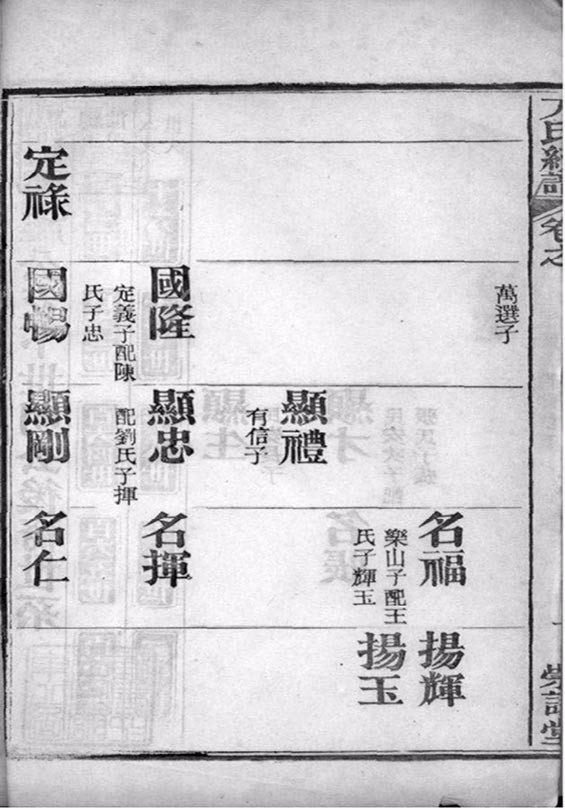 卷之
萬選子
名福
樂山子配王
氏子輝玉
揚輝
揚玉
顯禮
有信子
國隆
定義子配陳
氏子忠
顯忠
配劉氏子揮
名揮
定祿
國暢
顯剛
名仁